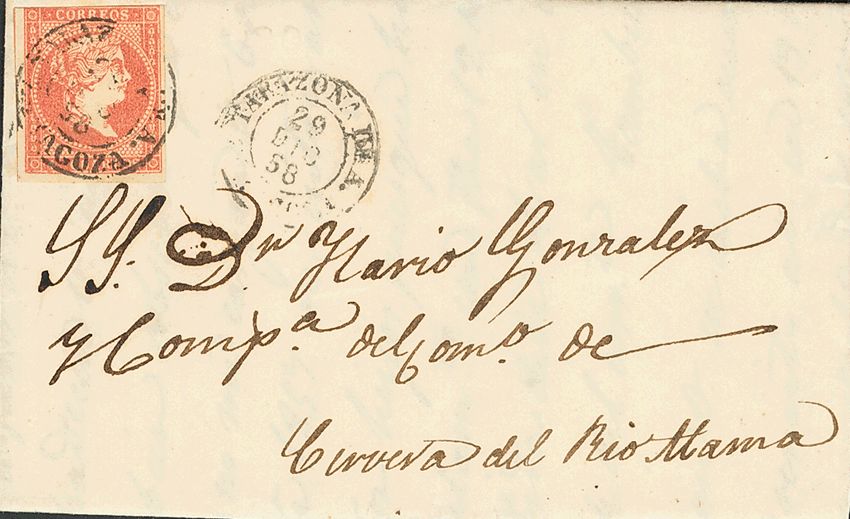 CORREOS
GOZA.
TARAZONA DE A.
29
DIC
58
SS. Dn Ylario Gonzalez
y Compa. del Como. de
Cervera del Rio Alama